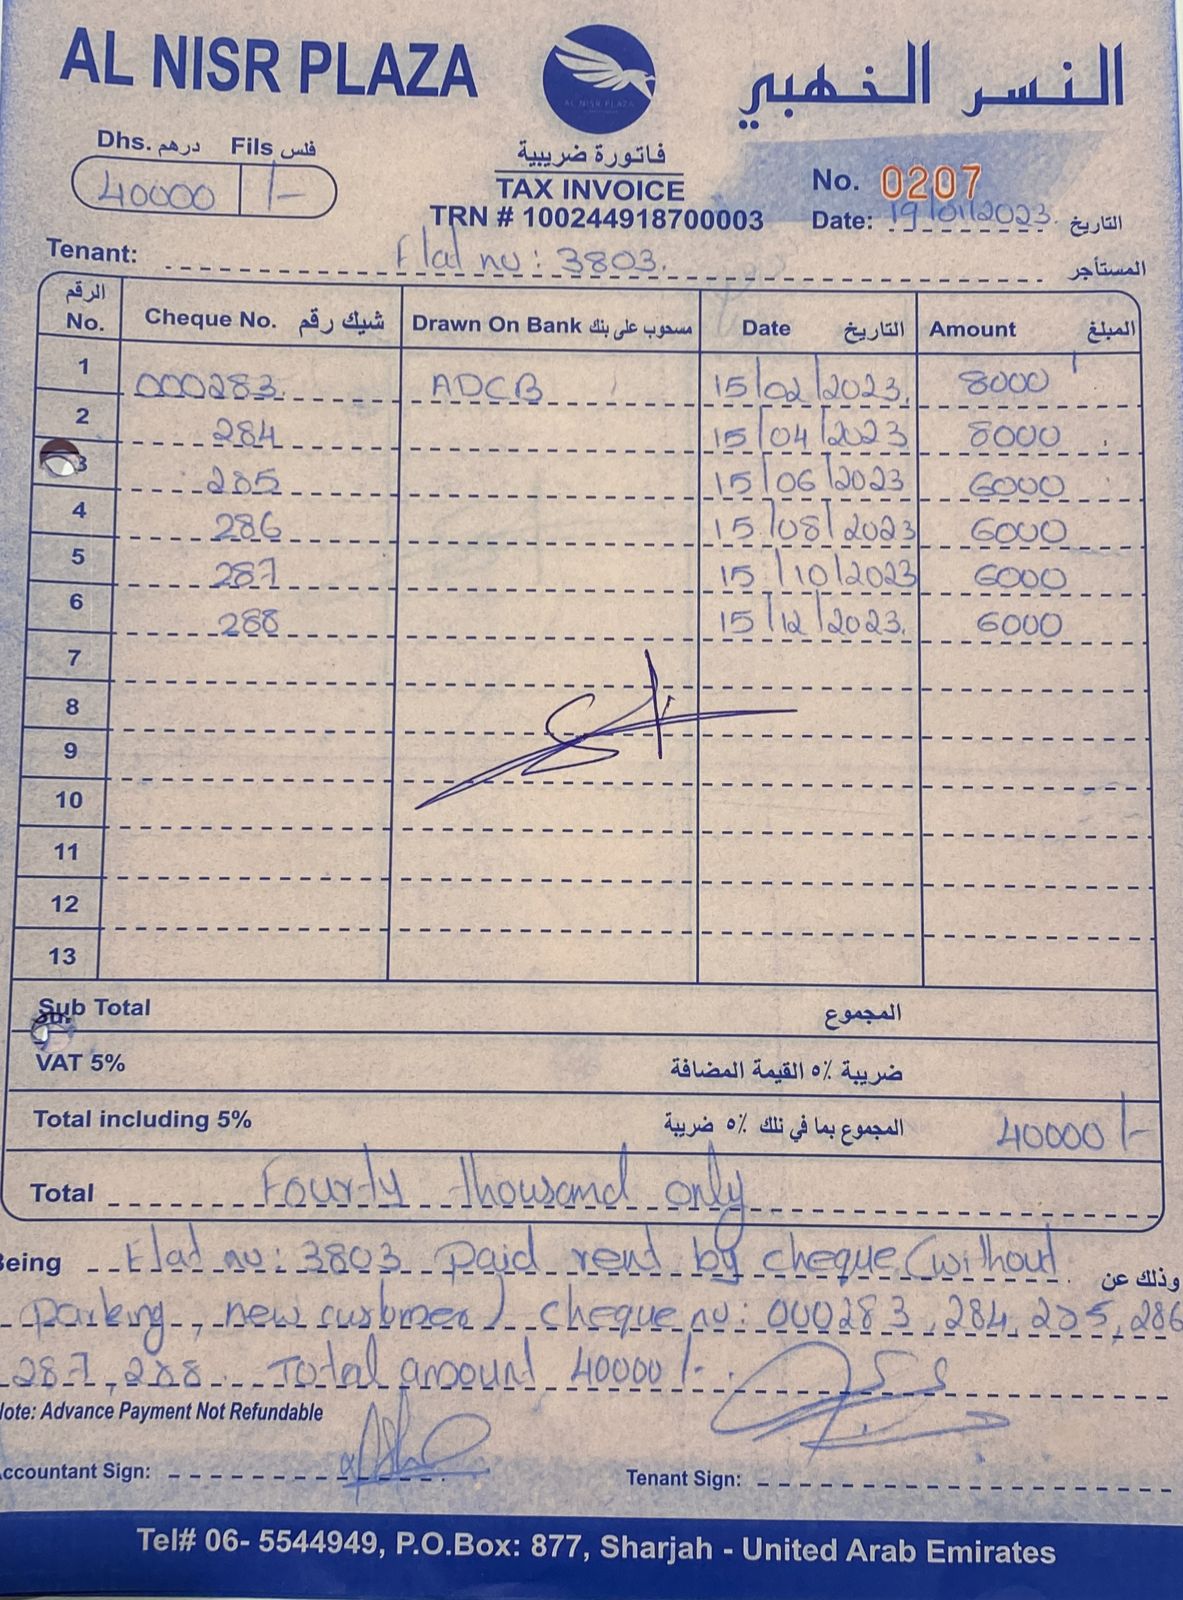 AL NISR PLAZA
AL NISR PLAZA
النسر الذهبي
Dhs. درهم Fils فلس
40000 /-
فاتورة ضريبية
TAX INVOICE
TRN # 100244918700003
No. 0207
Date: 19/01/2023. التاريخ
Tenant: Flat no: 3803. المستأجر
الرقم No. Cheque No. شيك رقم Drawn On Bank مسحوب على بنك Date التاريخ Amount المبلغ
1 000283. ADCB 15/02/2023. 8000
2 284 15/04/2023 8000
3 285 15/06/2023 6000
4 286 15/08/2023 6000
5 287 15/10/2023 6000
6 288 15/12/2023. 6000
7
8
9
10
11
12
13
Sub Total المجموع
VAT 5% ضريبة ٥٪ القيمة المضافة
Total including 5% المجموع بما في ذلك ٥٪ ضريبة 40000/-
Total Fourty thousand only
Being Flat no: 3803 Paid rent by cheque (without وذلك عن
Parking, new customer) cheque no: 000283, 284, 285, 286
287, 288 Total amount 40000/-.
Note: Advance Payment Not Refundable
Accountant Sign: Tenant Sign:
Tel# 06- 5544949, P.O.Box: 877, Sharjah - United Arab Emirates